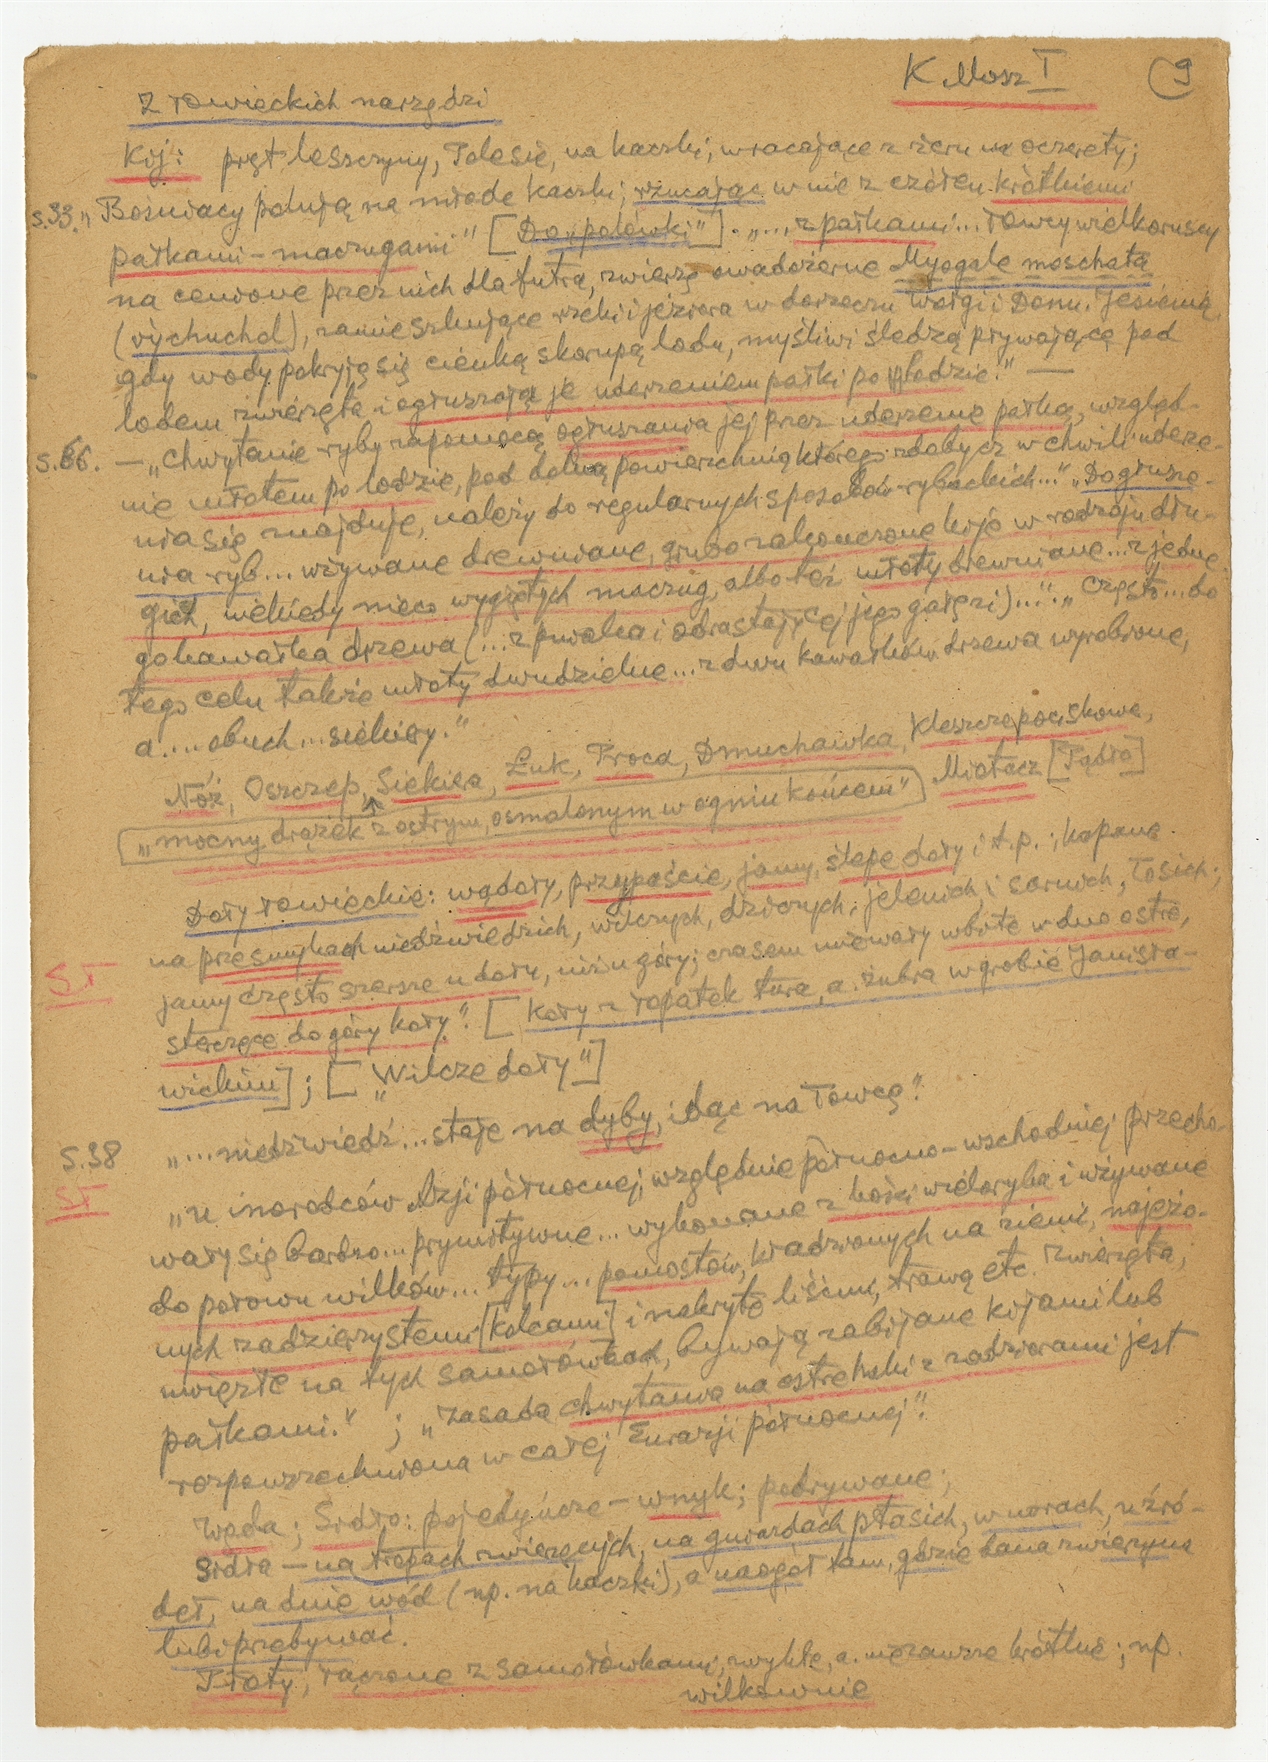 K. Mosz I (9
Z łowieckich narzędzi
Kij: pręt leszczyny, Polesie, na kaczki, wracające z żeru na oczerety;
s.33. „Bośniacy polują na młode kaczki, rzucając w nie z czółen krótkiemi
pałkami-maczugami" [Do „połówki"]. „... z pałkami... łowcy wielkoruscy
na cenione przez nich dla futra, zwierzę owadożerne Myogale moschata
(vychuchol), zamieszkujące rzeki i jeziora w dorzeczu Wołgi i Donu. Jesienią,
gdy wody pokryją się cienką skorupą lodu, myśliwi śledzą pływające pod
lodem zwierzęta i ogłuszają je uderzeniem pałki po lodzie." —
s.66. — „Chwytanie ryby zapomocą ogłuszania jej przez uderzenie pałką, względ-
nie młotem po lodzie, pod dolną powierzchnią którego zdobycz w chwili uderze-
nia się znajduje, należy do regularnych sposobów rybackich..." „Do głusze-
nia ryb... używane drewniane, grubo zakończone kije w rodzaju dłu-
gich, niekiedy nieco wygiętych maczug, albo też młoty drewniane... z jedne-
go kawałka drzewa (... z pniaka i odrastającej jego gałęzi)...". „Często... do
tego celu także młoty dwudzielne... z dwu kawałków drzewa wyrobione,
a.... obuch... siekiery."
Nóż, Oszczep, Siekiera, Łuk, Proca, Dmuchawka, Kleszcze pociskowe,
„mocny drążek z ostrym, osmalonym w ogniu końcem" Miotacz [Pądło]
Doły łowieckie: wądoły, przepaście, jamy, ślepe doły i t.p.; kopane
na przesmykach niedźwiedzich, wilczych, dziczych, jelenich i sarnich, łosich;
ST jamy często szersze u dołu, niż u góry; czasem miewały wbite w dno ostre,
sterczące do góry koły". [Koły z łopatek tura, a. żubra w grobie Janisła-
wickim]; [„Wilcze doły"]
s.38 „... niedźwiedź... staje na dyby, idąc na łowcę".
ST „u inorodców Azji północnej, względnie północno-wschodniej przecho-
wały się bardzo... prymitywne... wykonane z kości wieloryba i używane
do połowu wilków... typy... pomostów, kładzionych na ziemi, najeżo-
nych zadzierzystemi [kolcami] i nakryte liśćmi, trawą etc. Zwierzęta,
uwięzłe na tych samołówkach, bywają zabijane kijami lub
pałkami." ; „Zasada chwytania na ostre haki z zadziorami jest
rozpowszechniona w całej Eurazji północnej".
Węda; Sidło: pojedyńcze — wnyk; podrywane;
Sidła — na tropach zwierzęcych, na gniazdach ptasich, w norach, u źró-
deł, na dnie wód (np. na kaczki), a naogół tam, gdzie dana zwierzyna
lubi przebywać.
Płoty, łączone z samołówkami, zwykle, a. nie zawsze krótkie; np.
wilkownie